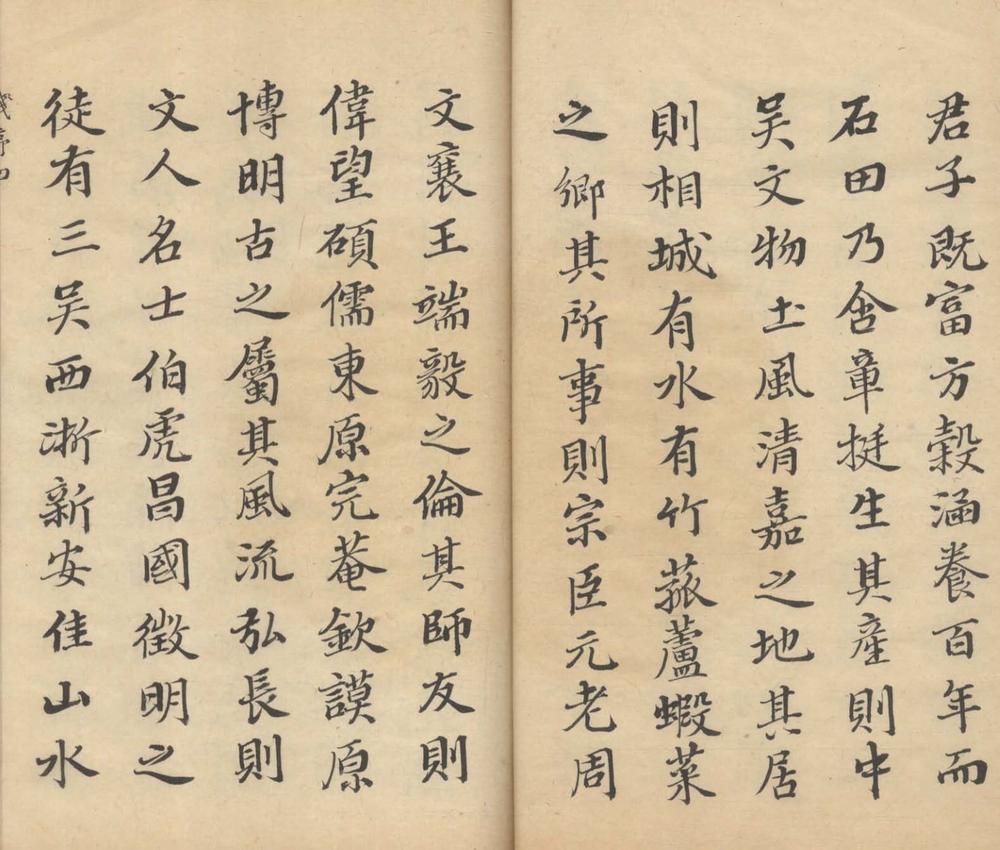 君子既富方穀涵養百年而
石田乃含章挺生其產則中
吴文物土風清嘉之地其居
則相城有水有竹菰蘆蝦菜
之鄉其所事則宗臣元老周
文襄王端毅之倫其師友則
偉望碩儒東原完菴欽謨原
博明古之屬其風流弘長則
文人名士伯虎昌國徵明之
徒有三吴西浙新安佳山水